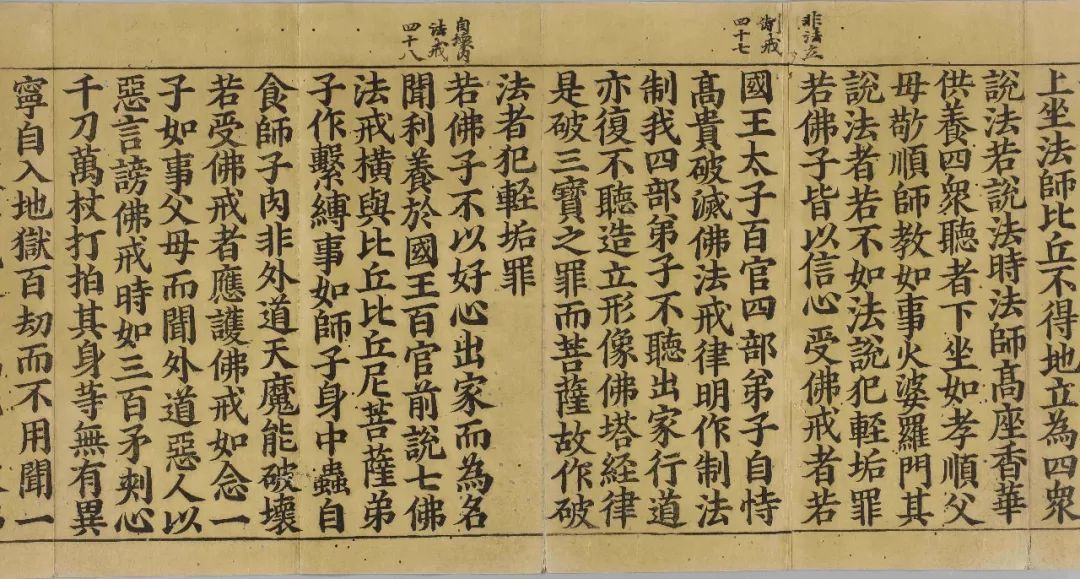 上坐法師比丘不得地立為四衆
說法若說法時法師髙座香華
供養四衆聽者下坐如孝順父
母敬順師教如事火婆羅門其
說法者若不如法說犯輕垢罪
非法立
制戒
四十七
若佛子皆以信心受佛戒者若
國王太子百官四部弟子自恃
髙貴破滅佛法戒律明作制法
制我四部弟子不聽出家行道
亦復不聽造立形像佛塔経律
是破三寶之罪而菩薩故作破
法者犯輕垢罪
自壞内
法戒
四十八
若佛子不以好心出家而為名
聞利養於國王百官前說七佛
法戒橫與比丘比丘尼菩薩弟
子作繫縛事如師子身中蟲自
食師子肉非外道天魔能破壞
若受佛戒者應護佛戒如念一
子如事父母而聞外道惡人以
惡言謗佛戒時如三百矛刺心
千刀萬杖打拍其身等無有異
寧自入地獄百劫而不用聞一